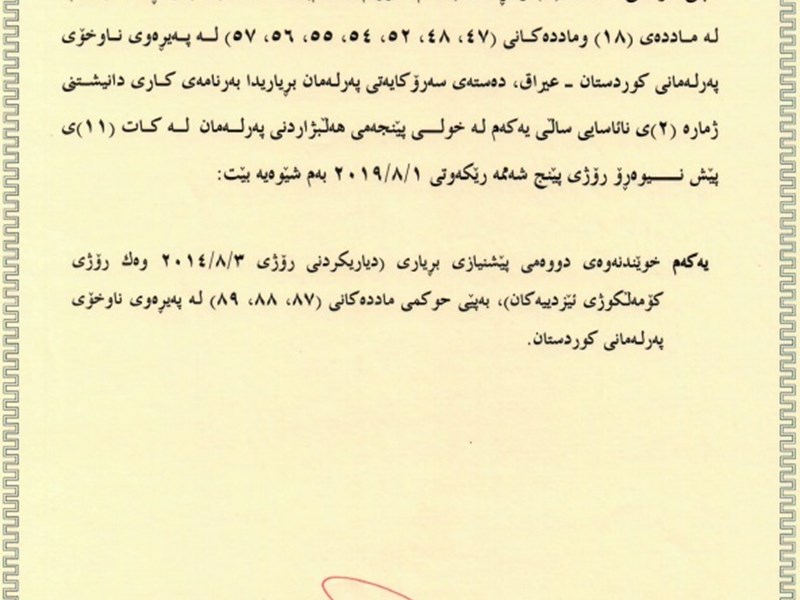 لە مـاددەی (١٨) وماددەکـانی (٤٧، ٤٨، ٥٢، ٥٤، ٥٥، ٥٦، ٥٧) لــە پـەیڕەوی نـاوخۆی
پەرلەمانی کوردستان ـ عیراق، دەستەی سەرۆکایەتی پەرلەمان بڕیاریدا بەرنامەی کاری دانیشتنی
ژمارە (٢)ی نائاسایی ساڵی یەکەم لە خولــی پێنجەمی هەڵبژاردنی پەرلــەمان لــە کـات (١١)ی
پێش نـــیوەڕۆ رۆژی پێنج شەممە رێکەوتی ٢٠١٩/٨/١ بەم شێوەیە بێت:
یەکەم خوێندنەوەی دووەمی پێشنیازی بڕیاری (دیاریکردنی رۆژی ٢٠١٤/٨/٣ وەك رۆژی
کۆمەڵکوژی ئێزدییەکان)، بەپێی حوکمی ماددەکانی (٨٧، ٨٨، ٨٩) لە پەیڕەوی ناوخۆی
پەرلەمانی کوردستان.